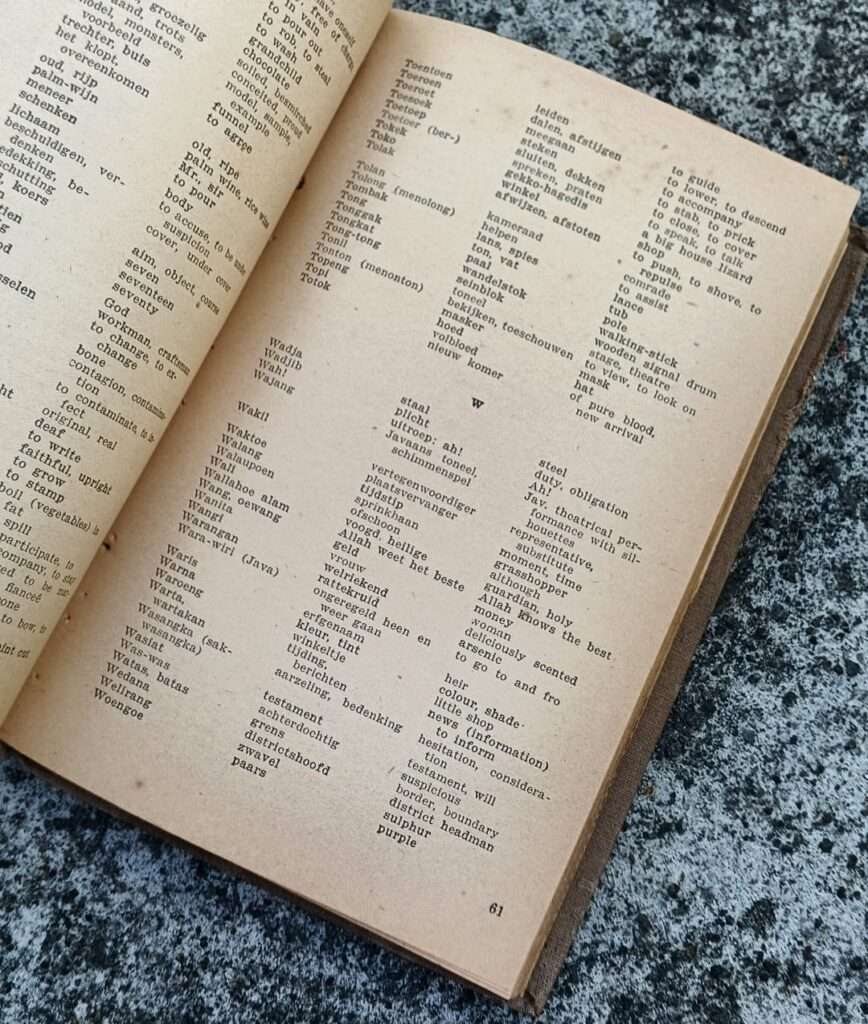 groezelig
trots
monsters,
voorbeeld
trechter, buis
het klopt,
overeenkomen
oud, rijp
palm-wijn
meneer
schenken
lichaam
beschuldigen, ver-
denken
be-
koers
free of charge
in vain
to pour out
to rob, to steal
to wash
grandchild
chocolate
soiled, besmirched
conceited, proud
model, sample,
example
funnel
to agree
old, ripe
palm wine, rice wine
Mr. sir
to pour
body
to accuse, to be under
suspicion
cover, under cover
aim, object, course
seven
seventeen
seventy
God
workman, craftsman
to change, to ex-
change
bone
contagion, contamina-
tion
to contaminate, to in-
fect
original, real
deaf
to write
faithful, upright
to grow
to stamp
boil (vegetables) in
fat
spill
participate, to
company, to stay
fiancée
to bow, to
Toentoen leiden to guide
Toeroen dalen, afstijgen to lower, to descend
Toeroet meegaan to accompany
Toesoek steken to stab, to prick
Toetoep sluiten, dekken to close, to cover
Toetoer (ber-) spreken, praten to speak, to talk
Tekek gekko-hagedis a big house lizard
Toko winkel shop
Tolak afwijzen, afstoten to push, to shove, to
repulse
Tolan kameraad comrade
Tolong (menolong) helpen to assist
Tombak lans, spies lance
Tong ton, vat tub
Tonggak paal pole
Tongkat wandelstok walking-stick
Tong-tong seinblok wooden signal drum
Tonil toneel stage, theatre
Tonton (menonton) bekijken, toeschouwen to view, to look on
Topeng masker mask
Topi hoed hat
Totok volbloed of pure blood,
nieuw komer new arrival
W
Wadja staal steel
Wadjib plicht duty, obligation
Wah! uitroep; ah! Ah!
Wajang Javaans toneel, Jav. theatrical per-
schimmenspel formance with sil-
houettes
Wakil vertegenwoordiger representative,
plaatsvervanger substitute
Waktoe tijdstip moment, time
Walang sprinkhaan grasshopper
Walaupoen ofschoon although
Wali voogd, heilige guardian, holy
Wallahoe alam Allah weet het beste Allah knows the best
Wang, oewang geld money
Wanita vrouw woman
Wangi welriekend deliciously scented
Warangan rattekruid arsenic
Wara-wiri (Java) ongeregeld heen en to go to and fro
weer gaan
Waris erfgenaam heir
Warna kleur, tint colour, shade
Waroeng winkeltje little shop
Warta, tijding, news (information)
wartakan berichten to inform
Wasangka (sak- aarzeling, bedenking hesitation, considera-
wasangka) tion
Wasiat testament testament, will
Was-was achterdochtig suspicious
Watas, batas grens border, boundary
Wedana districtshoofd district headman
Welirang zwavel sulphur
Woengoe paars purple
61